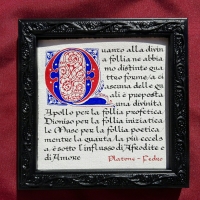 Quanto alla divin
a follia ne abbia
mo distinte qua
ttro forme, a ci
ascuna delle qu
ali è preposta
una divinità
Apollo per la follia profetica
Dioniso per la follia iniziatica
le Muse per la follia poetica
mentre la quarta, la più eccels
a è sotto l'influsso di Afrodite e
di Amore
Platone - Fedro